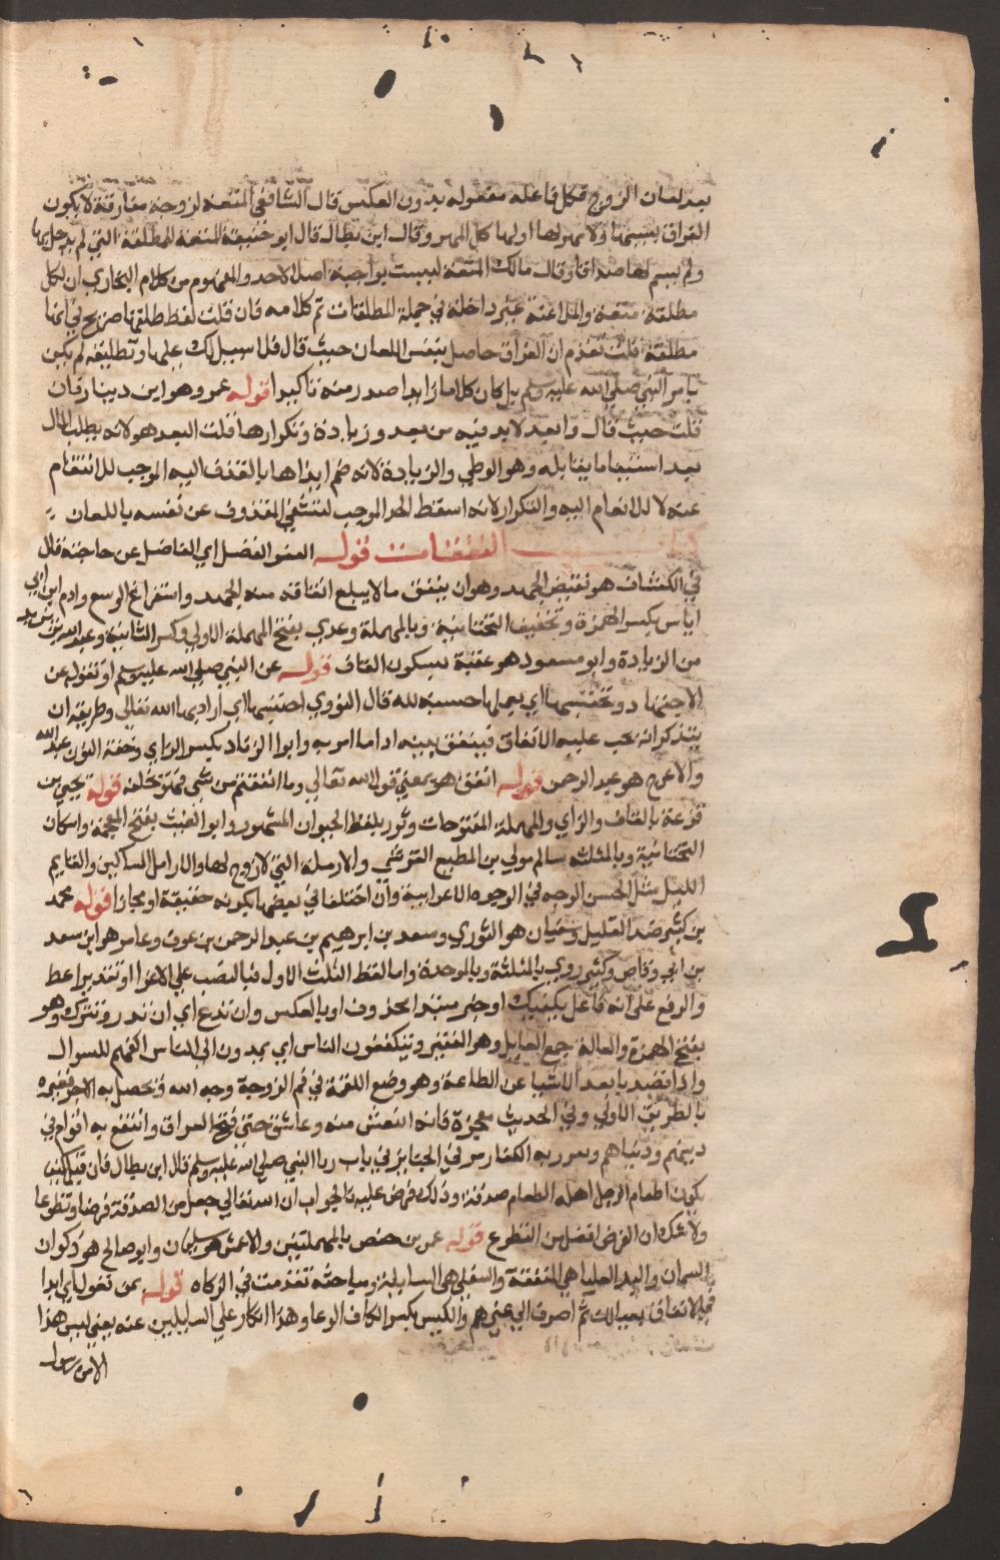 بعد لعان الزوج فكل فاعله مفعوله بدون العكس قال الشافعي المتعة لزوجة مفارقة لا يكون
الفراق بسببها ولا مهر لها او لها كل المهر وقال ابن بطال قال ابو حنيفة المتعة للمطلقة التي لم يدخل بها
ولم يسم لها صداقا وقال مالك المتعة ليست بواجبة اصلا لاحد والمفهوم من كلام البخاري ان لكل
مطلقة متعة والملاعنة غير داخلة في جملة المطلقات تم كلامه فان قلت لفظ طلقها صريح في انها
مطلقة قلت تقدم ان الفراق حاصل بنفس اللعان حيث قال فلا سبيل لك عليها وتطليقه لم يكن
بامر النبي صلى الله عليه وسلم بل كان كلاما زايدا صدر منه تاكيدا قوله عمرو هو ابن دينار فان
قلت حيث قال وابعد لا بد فيه من بعد وزيادة وتكرارها قلت البعد هو لانه يطلب المال
بعد استيفا ما يقابله وهو الوطي والزيادة لانه ضم ايذاها بالقذف اليه الموجب للانتقام
عنه لا للانعام اليه والتكرار لانه اسقط الحد الموجب لتشفي المقذوف عن نفسه باللعان
النفقات قوله العفو الفضل اي الفاضل عن حاجته قال
في الكشاف هو نقيض الجهد وهو ان ينفق ما لا يبلغ انفاقه منه الجهد واستفراغ الوسع وادم ابن ابي
اياس بكسر الهمزة وتخفيف التحتانية وبالمهملة وعدي بفتح المهملة الاولى وكسر الثانية وعبد الله بن يزيد
من الزيادة وابو مسعود هو عقبة بسكون القاف قوله عن النبي صلى الله عليه وسلم او تقوله عن
الاجتهاد وتحتسبها اي يعملها حسبة لله قال النووي احتسبها اي اراد بها الله تعالى وطريقه ان
يتذكر انه يجب عليه الانفاق فينفق بنية ادا ما امر به وابوا الزناد بكسر الزاي وخفة النون عبد الله
والاعرج هو عبد الرحمن قوله انفق هو بمعني قول الله تعالي وما انفقتم من شي فهو يخلفه قوله يحيي بن
قزعة بالقاف والزاي والمهملة المفتوحات وثور بلفظ الحيوان المشهور وابو الغيث بفتح المعجمة واسكان
التحتانية وبالمثلثه سالم مولي بن المطيع القرشي والارملة التي لا زوج لها والارامل المساكين والقايم
الليل مثل الحسن الوجه في الوجوه الاعرابية وان اختلفا في بعضها بكونه حقيقة او مجازا قوله محمد
بن كثير ضد القليل وسفيان هو الثوري وسعد بن ابرهيم بن عبد الرحمن بن عوف وعامر هو ابن سعد
بن ابي وقاص وكثير روي بالمثلثة وبالموحدة واما لفظ الثلث الاول فبالنصب علي الاغرا او تقدير اعط
والرفع على انه فاعل يكفيك او خبر مبتدا محذوف او بالعكس وان تدع اي ان تذر وتترك وهو
بفتح الهمزة والعالة جمع العايل وهو الفقير ويتكففون الناس اي يمدون الى الناس اكفهم للسوال
واذا قصد بابعد الاشيا عن الطاعة وهو وضع اللقمة في فم الزوجة وجه الله فحصل به الاجر فغيره
بالطريق الاولي وفي الحديث معجزة فانه انتعش منه وعاش حتى فتح العراق وانتفع به اقوام في
دينهم ودنياهم وضرر به الكفار مر في الجنايز في باب رثا النبي صلي الله عليه وسلم قال ابن بطال فان قيل كيف
يكون اطعام الرجل اهله الطعام صدقة وذلك فرض عليه فالجواب ان الله تعالي جعل من الصدقة فرضا وتطوعا
ولا شك ان الفرض افضل من التطوع قوله عمر بن حفص بالمهملتين والاعمش هو سليمان وابو صالح هو ذكوان
السمان واليد العليا هي المنفقة والسفلي هي السايلة ومباحثه تقدمت في الزكاه قوله بمن تعول اي ابدا
في الانفاق بعيالك ثم اصرف الي غيرهم والكيس بكسر الكاف الوعا وهذا انكار علي السايلين عنه يعني ليس هذا
الا من رسول